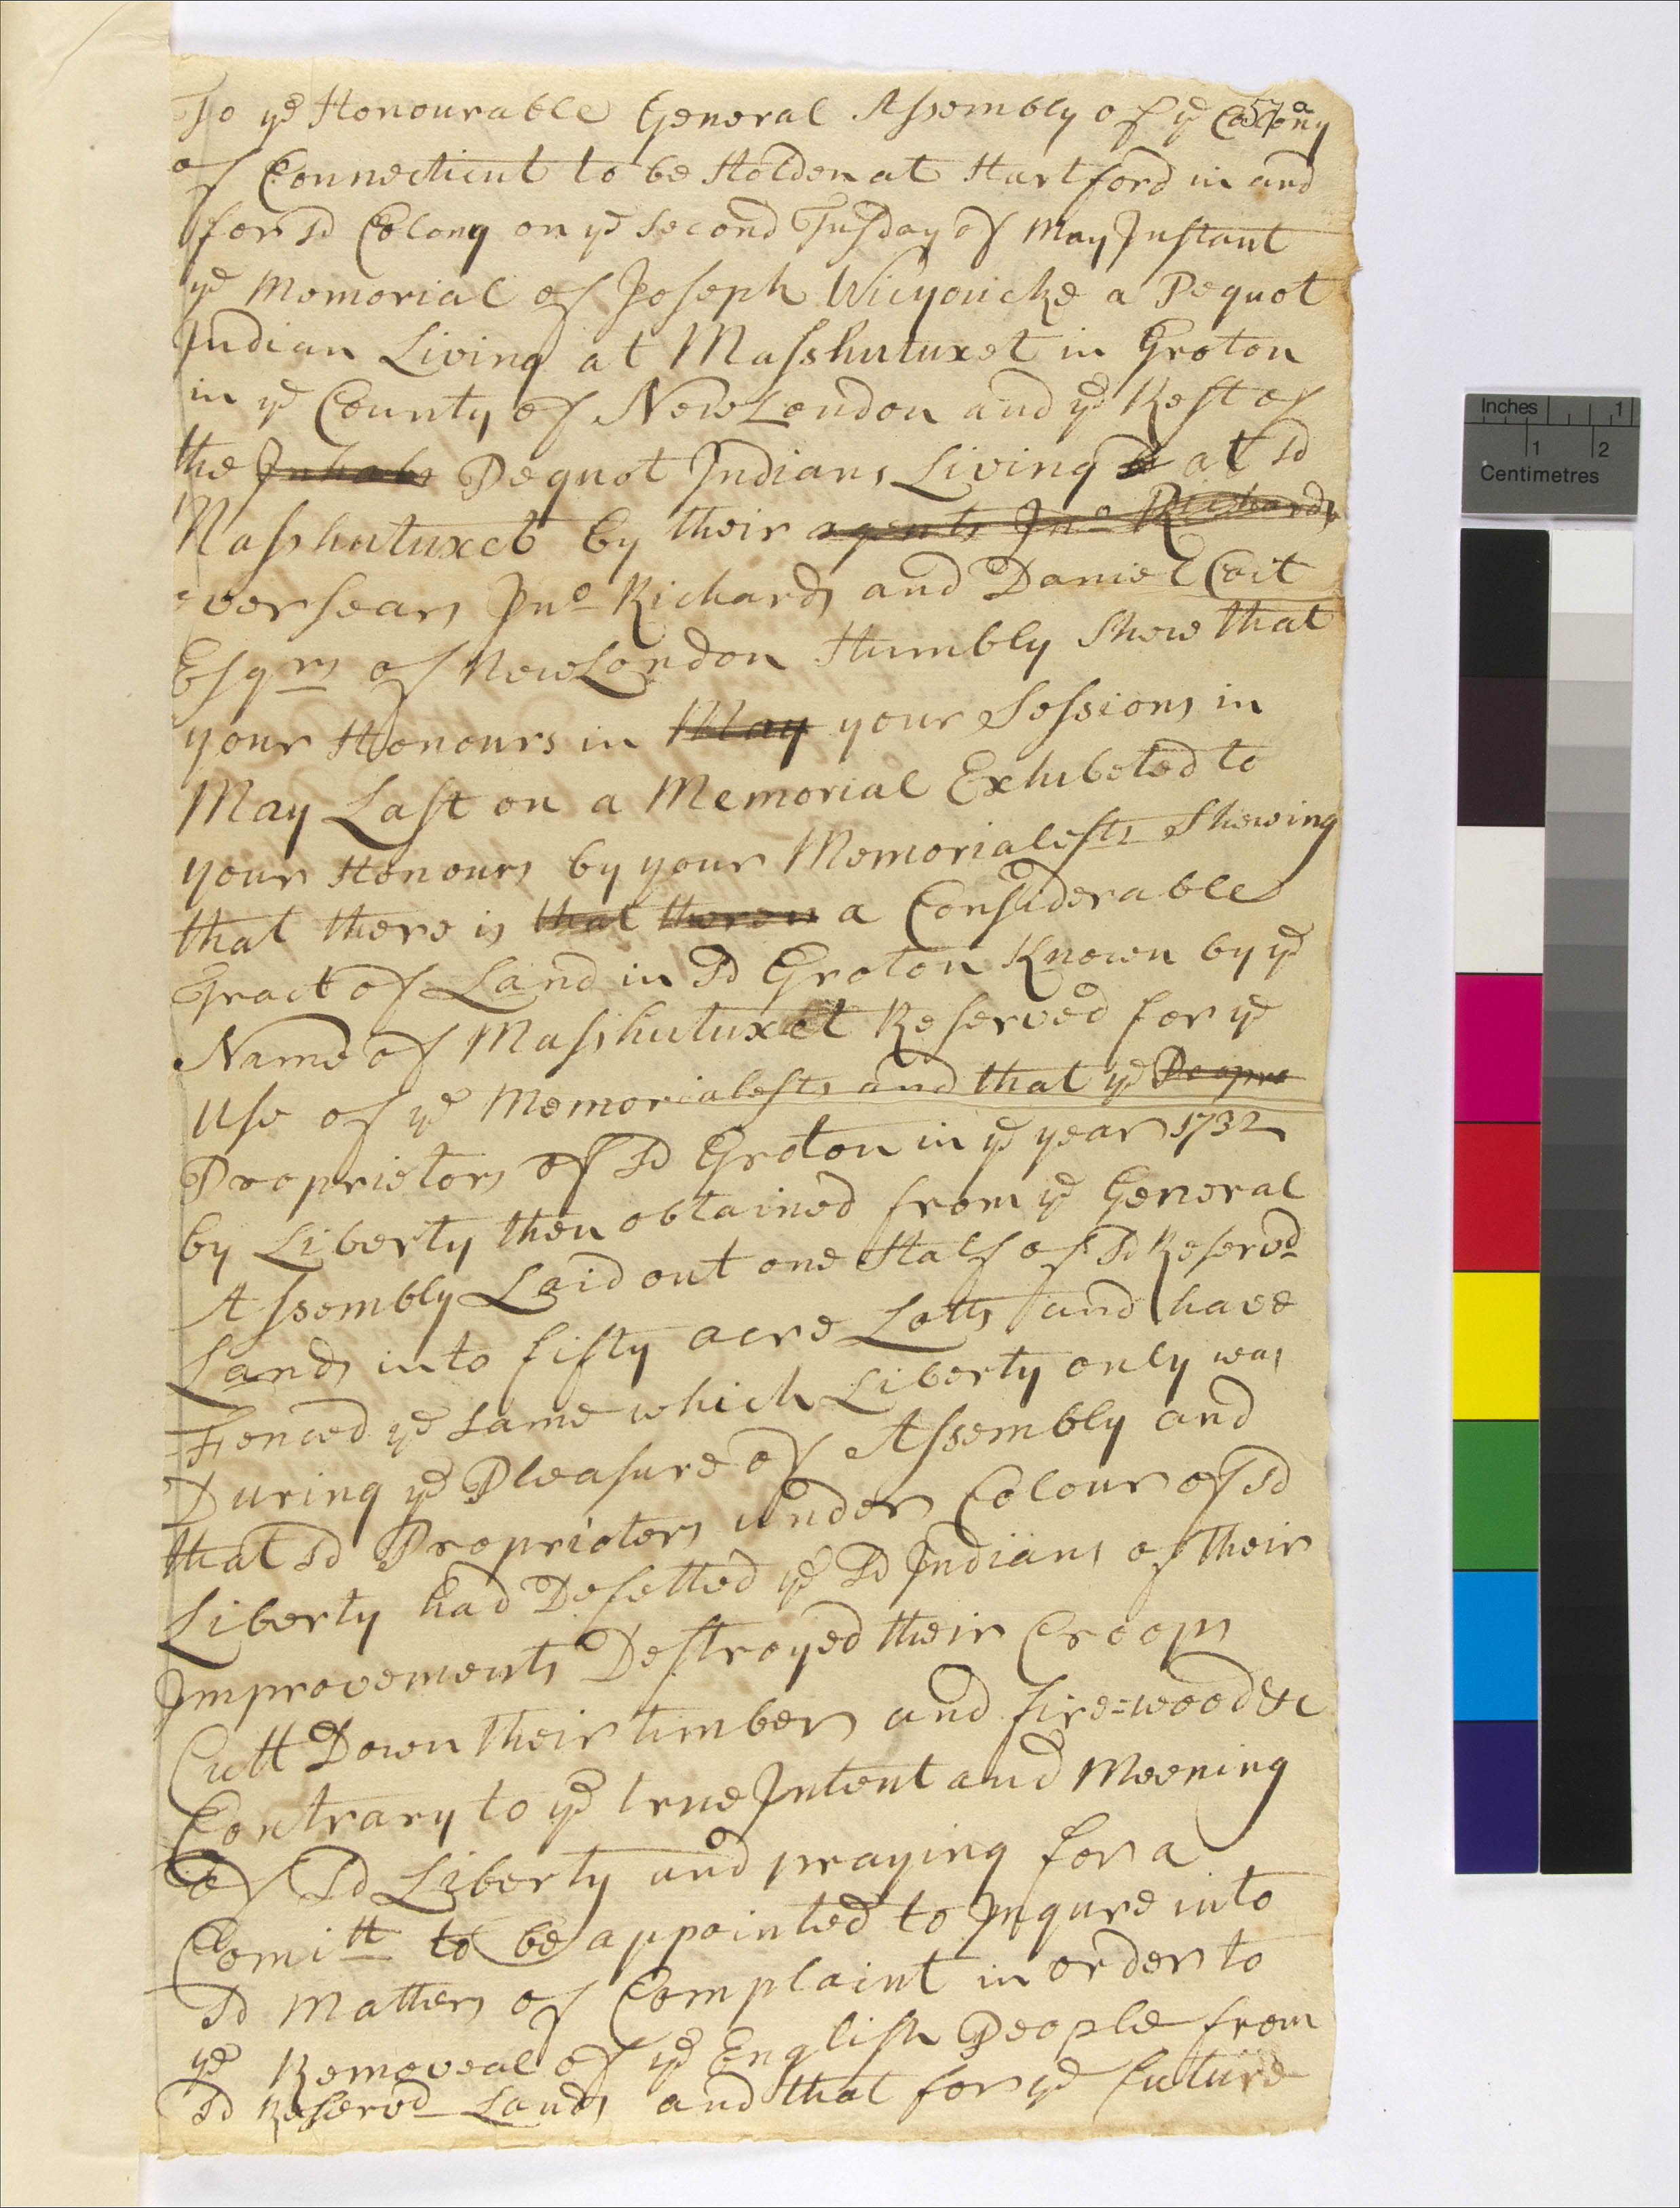 57a
To ye Honourable General Assembly of ye Colony
of Connecticut to be Holden at Hartford in and
for sd Colony on ye Second Tusday of May Instant
ye Memorial of Joseph Wieyoucke a Pequot
Indian Living at Masshutuxet in Groton
in ye County of New London and ye Rest of
the Inhabt Pequot Indians Living at sd
Masshutuxet by their agents Jno Richards
oversears Jno Richards and Daniel Coit
Esqrs of New London Humbly Shew that
your Honours in May your Sessions in
May Last on a Memorial Exhibeted to
your Honours by your Memorialests Shewing
that there is that thereis a Considerable
Tract of Land in sd Groton Known by ye
Name of Masshutuxet Reserved for ye
Use of ye Memorialests and that ye
Proprietors of sd Groton in ye year 1732
by Liberty then obtained from ye General
Assembly Laid out one Half of sd Reservd
Lands into fifty acre Lotts and have
Fenced ye Same which Liberty only was
During ye Pleasure of Assembly and
that sd Proprietors under Colour of sd
Liberty had Desetled ye sd Indians of their
Improvements Destroyed their Croops
Cutt Down their timber and fire=wood &c
Contrary to ye true Intent and Meening
of sd Liberty and praying for a
Comitt to be appointed to Inqure into
sd Matters of Complaint in order to
ye Removeal of ye English People from
sd Reservd Lands and that for ye future